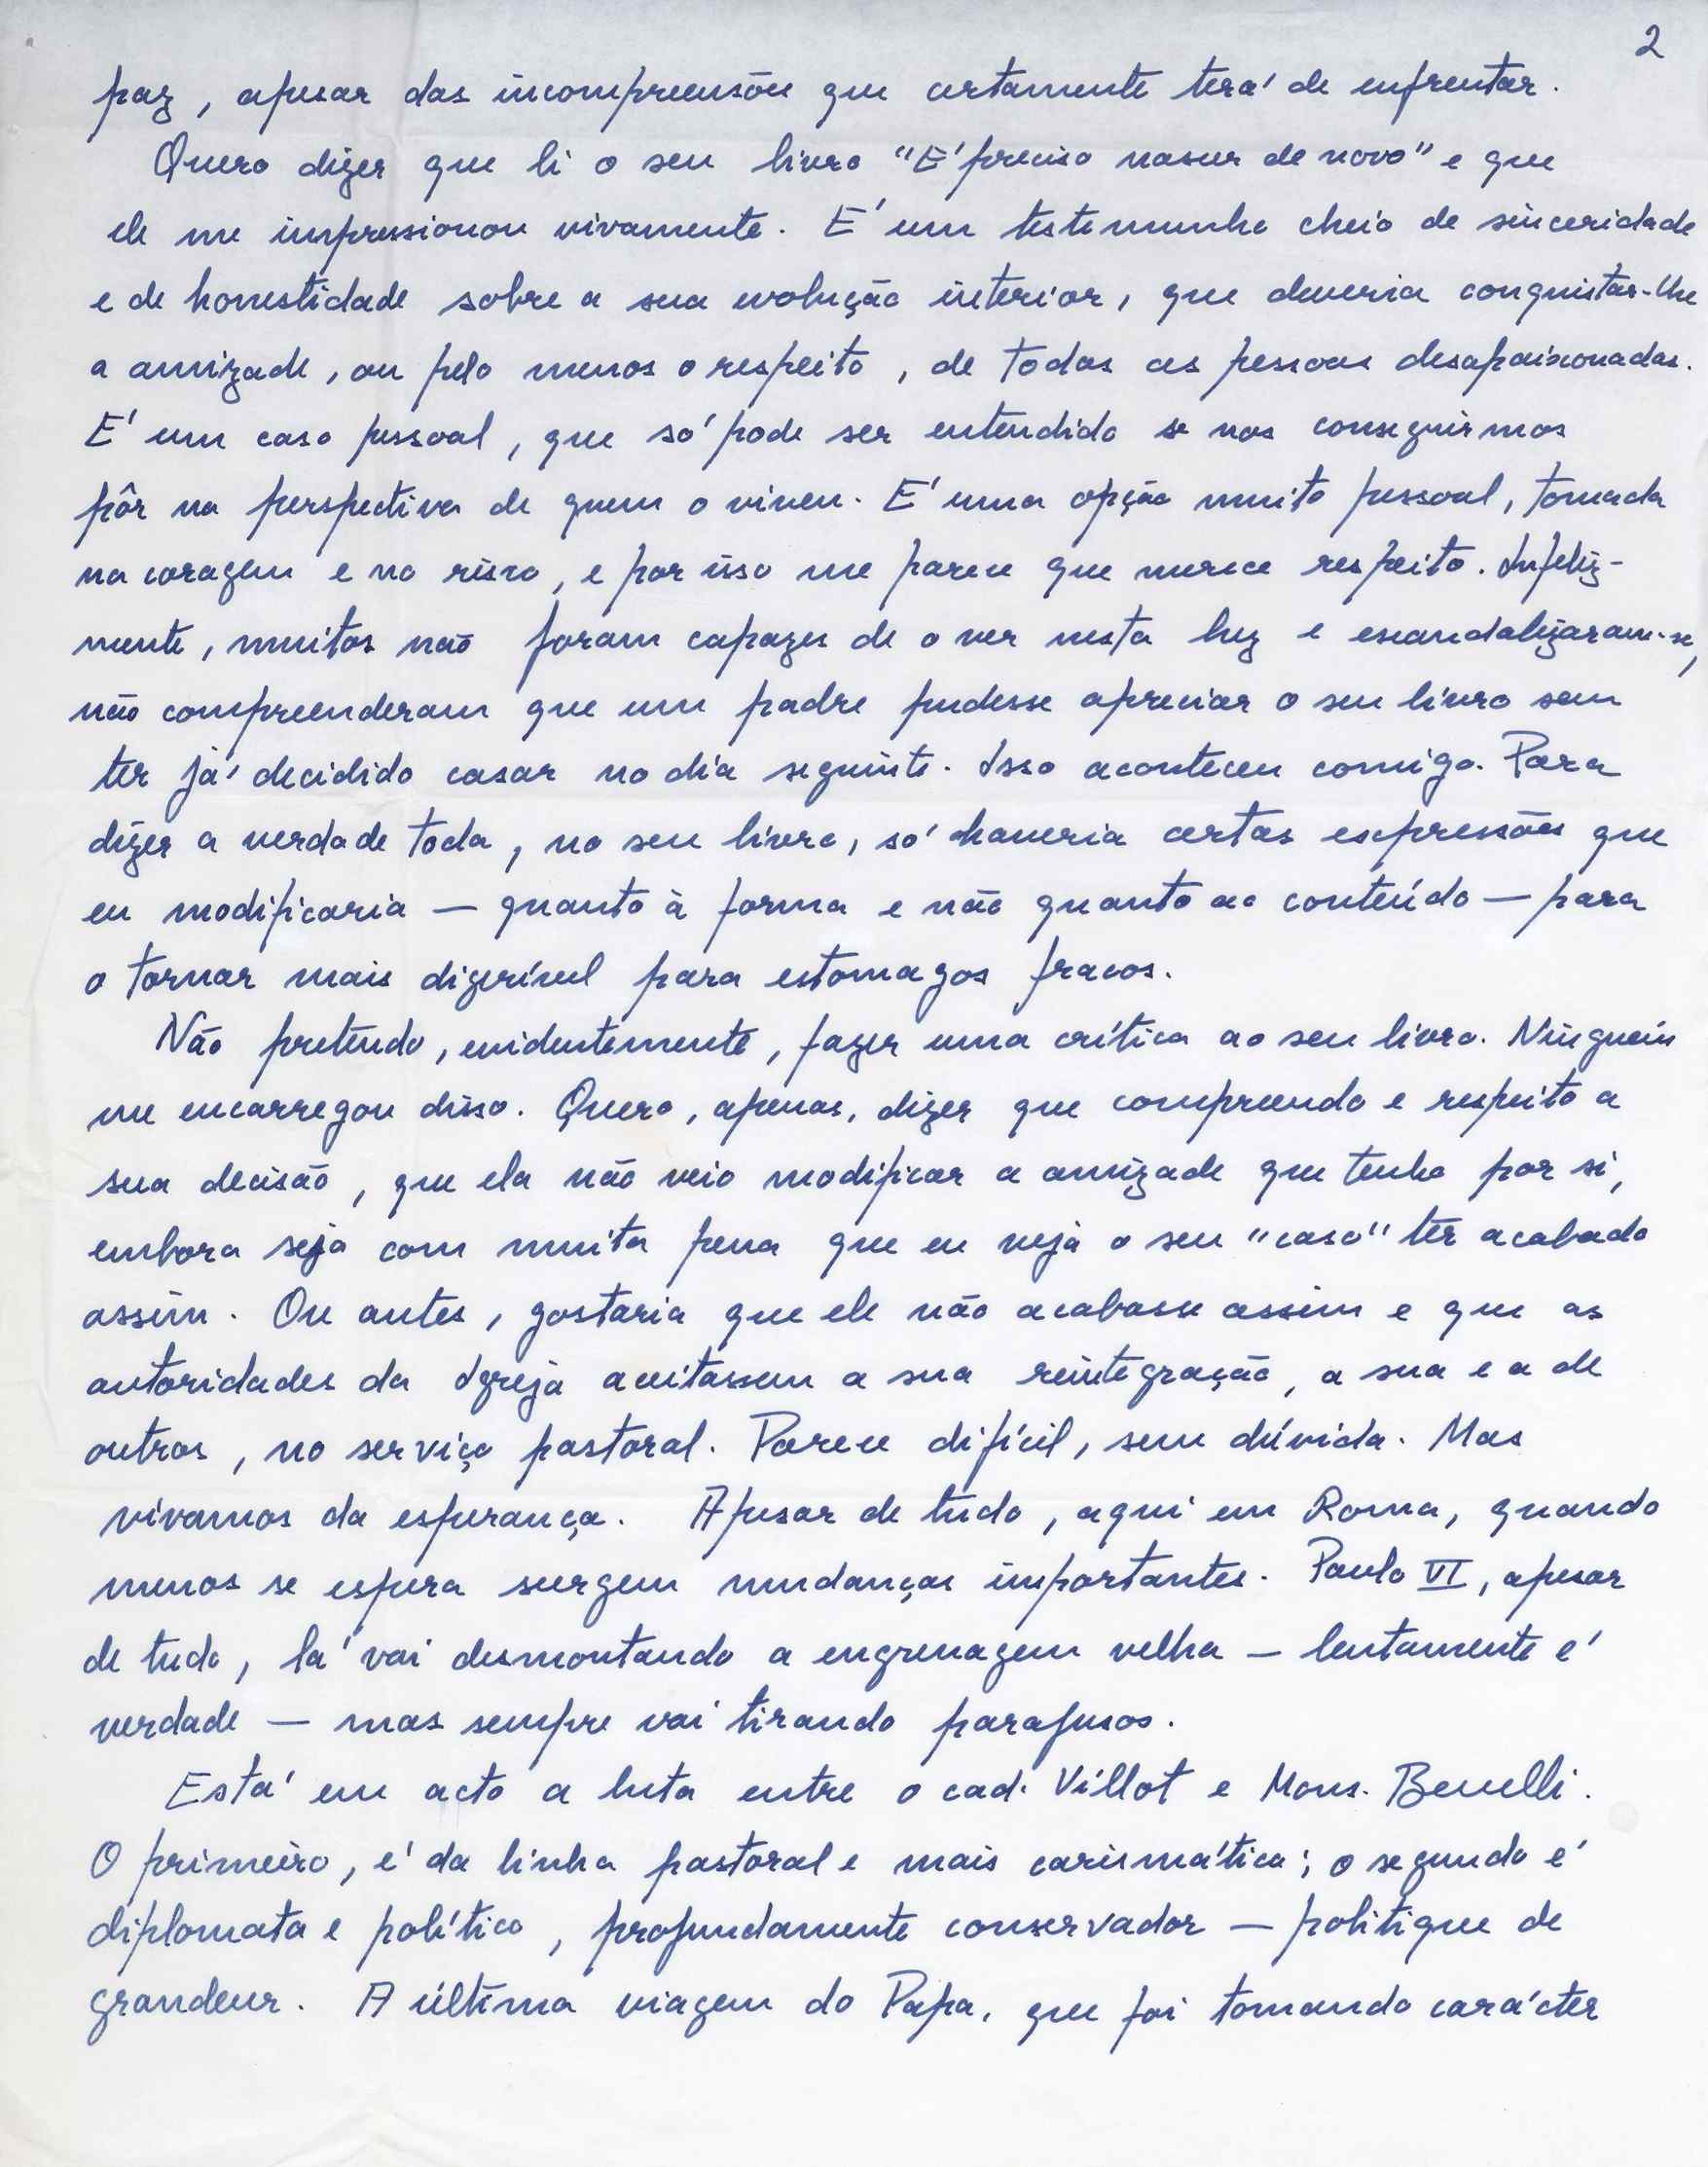 2
paz, apesar das incompreensões que certamente terá de enfrentar.
Quero dizer que li o seu livro "É preciso nascer de novo" e que
ele me impressionou vivamente. É um testemunho cheio de sinceridade
e de honestidade sobre a sua evolução interior, que deveria conquistar-lhe
a amizade, ou pelo menos o respeito, de todas as pessoas desapaixonadas.
É um caso pessoal, que só pode ser entendido se nos conseguirmos
pôr na perspectiva de quem o viveu. É uma opção muito pessoal, tomada
na coragem e no risco, e por isso me parece que merece respeito. Infeliz-
mente, muitos não foram capazes de o ver nesta luz e escandalizaram-se,
não compreenderam que um padre pudesse apreciar o seu livro sem
ter já decidido casar no dia seguinte. Isso aconteceu comigo. Para
dizer a verdade toda, no seu livro, só haveria certas expressões que
eu modificaria — quanto à forma e não quanto ao conteúdo — para
o tornar mais digerível para estomagos fracos.
Não pretendo, evidentemente, fazer uma crítica ao seu livro. Ninguém
me encarregou disso. Quero, apenas, dizer que compreendo e respeito a
sua decisão, que ela não veio modificar a amizade que tenho por si,
embora seja com muita pena que eu veja o seu "caso" ter acabado
assim. Ou antes, gostaria que ele não acabasse assim e que as
autoridades da Igreja aceitassem a sua reintegração, a sua e a de
outros, no serviço pastoral. Parece difícil, sem dúvida. Mas
vivamos da esperança. Apesar de tudo, aqui em Roma, quando
menos se espera surgem mudanças importantes. Paulo VI, apesar
de tudo, lá vai desmontando a engrenagem velha — lentamente é
verdade — mas sempre vai tirando parafusos.
Está em acto a luta entre o cad. Villot e Mons. Benelli.
O primeiro, é da linha pastoral e mais carismática; o segundo é
diplomata e político, profundamente conservador — politique de
grandeur. A última viagem do Papa, que foi tomando carácter